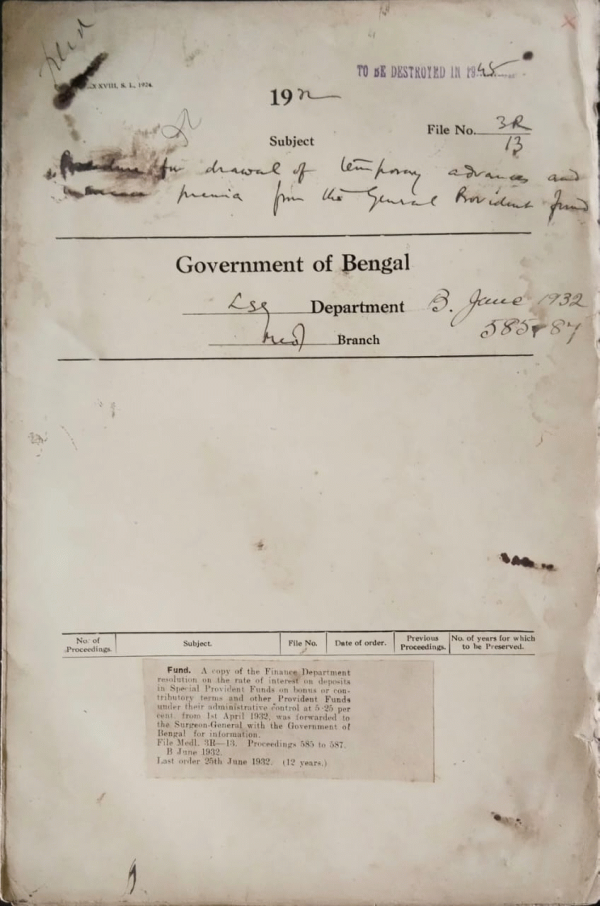 Filed
XXVIII, S. I., 1924.
TO BE DESTROYED IN 1945
1932
File No. 3R/13
Subject
Procedure for drawal of temporary advances and
insurance premia from the General Provident fund
Government of Bengal
LSG Department B. June 1932
Med Branch 585-87
No. of Proceedings.
Subject.
File No.
Date of order.
Previous Proceedings.
No. of years for which to be Preserved.
Fund. A copy of the Finance Department
resolution on the rate of interest on deposits
in Special Provident Funds on bonus or con-
tributory terms and other Provident Funds
under their administrative control at 5·25 per
cent. from 1st April 1932, was forwarded to
the Surgeon-General with the Government of
Bengal for information.
File Medl. 3R—13. Proceedings 585 to 587.
B June 1932.
Last order 25th June 1932. (12 years.)